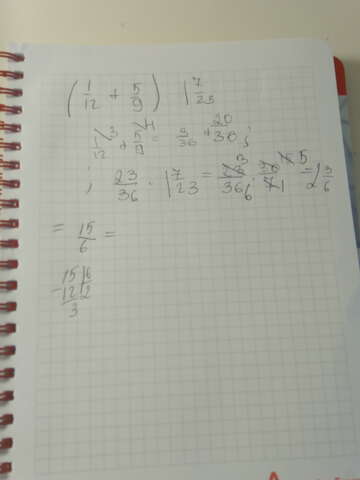 ( 1/12 + 5/9 ) · 1 7/23
1/12 \3 + 5/9 \4 = 3/36 + 20/36 ;
; 23/36 · 1 7/23 = 23 3/36 6 : 5/7 1 = 2 3/6
= 15/6 =
15 | 6
- 12 | 2
3